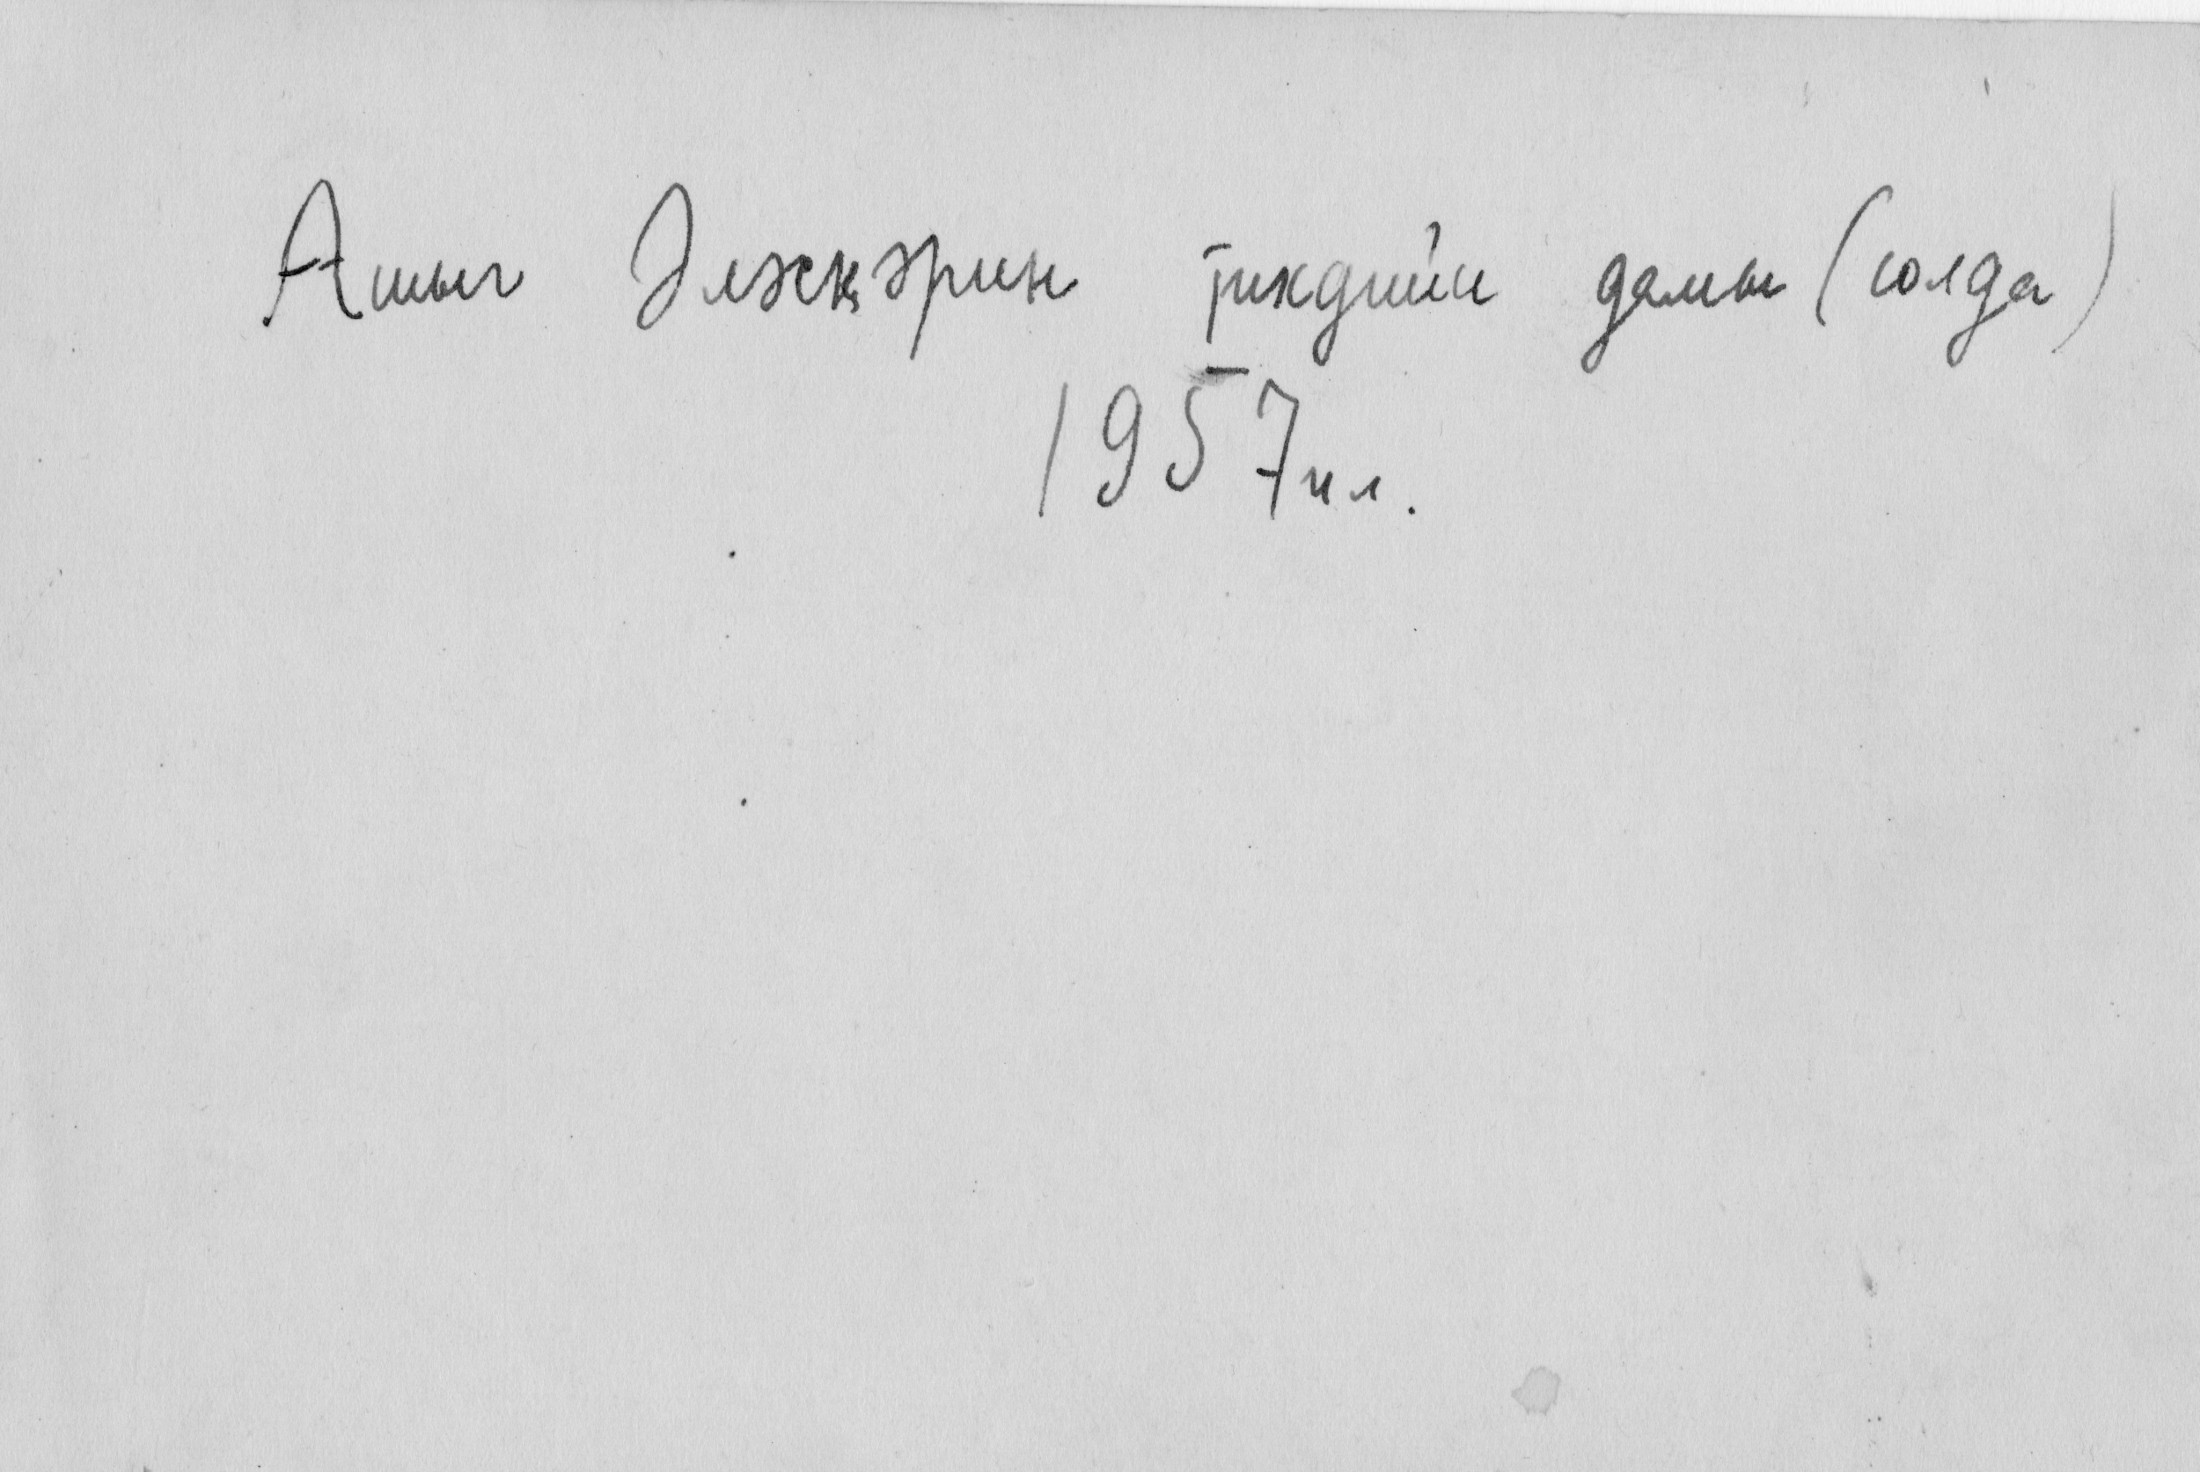 Ашыг Әләскәрин тикдийи дамы (солда)
1957 ил.